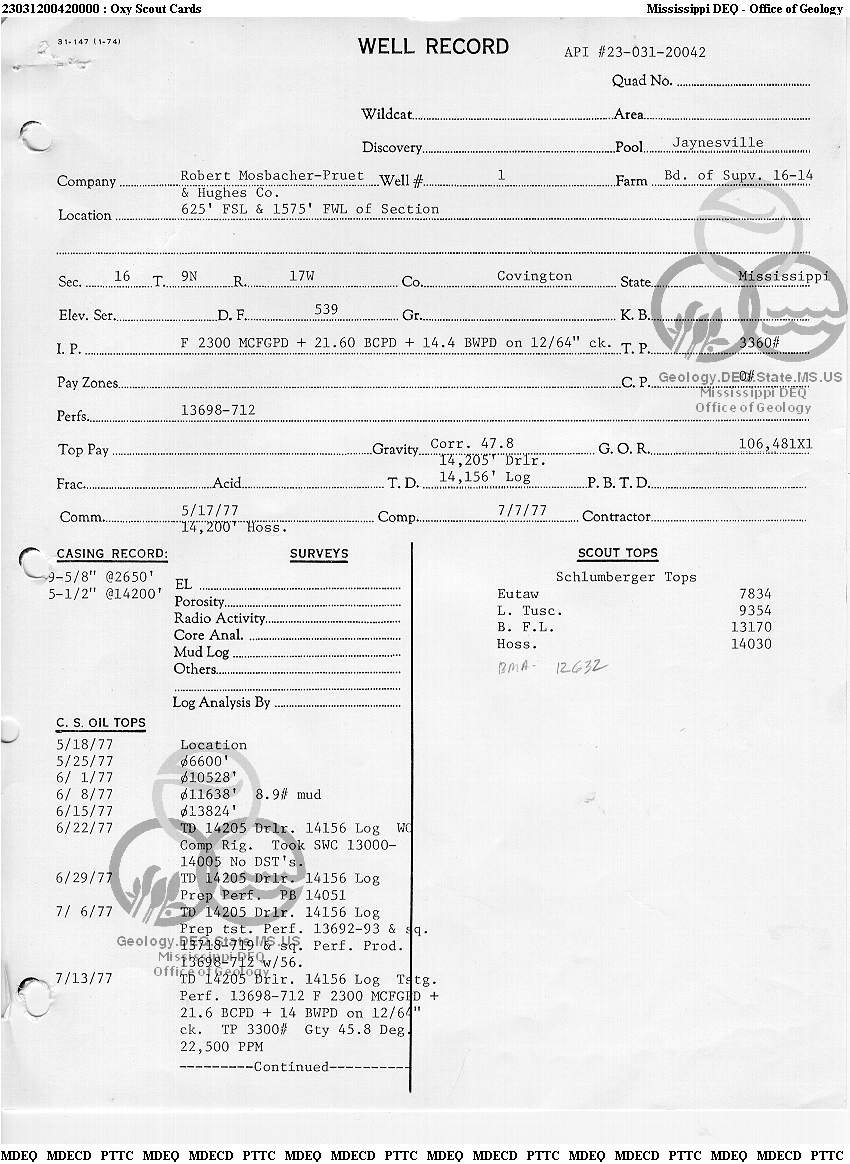 23031200420000 : Oxy Scout Cards Mississippi DEQ - Office of Geology
31-147 (1-74)
WELL RECORD API #23-031-20042
Quad No.
Wildcat Area
Discovery Pool Jaynesville
Company Robert Mosbacher-Pruet Well # 1 Farm Bd. of Supv. 16-14
& Hughes Co.
Location 625' FSL & 1575' FWL of Section
Sec. 16 T. 9N R. 17W Co. Covington State Mississippi
Elev. Ser. D. F. 539 Gr. K. B.
I. P. F 2300 MCFGPD + 21.60 BCPD + 14.4 BWPD on 12/64" ck. T. P. 3360#
Pay Zones C. P. 0#
Geology.DEQ.State.MS.US
Mississippi DEQ
Office of Geology
Perfs. 13698-712
Top Pay Gravity Corr. 47.8 G. O. R. 106,481X1
14,205' Drlr.
Frac. Acid T. D. 14,156' Log P. B. T. D.
Comm. 5/17/77 Comp. 7/7/77 Contractor
14,200' Hoss.
CASING RECORD: SURVEYS SCOUT TOPS
9-5/8" @2650' Schlumberger Tops
5-1/2" @14200' EL Eutaw 7834
Porosity L. Tusc. 9354
Radio Activity B. F.L. 13170
Core Anal. Hoss. 14030
Mud Log BMA- 12632
Others
Log Analysis By
C. S. OIL TOPS
5/18/77 Location
5/25/77 ø6600'
6/ 1/77 ø10528'
6/ 8/77 ø11638' 8.9# mud
6/15/77 ø13824'
6/22/77 TD 14205 Drlr. 14156 Log WO
Comp Rig. Took SWC 13000-
14005 No DST's.
6/29/77 TD 14205 Drlr. 14156 Log
Prep Perf. PB 14051
7/ 6/77 TD 14205 Drlr. 14156 Log
Prep tst. Perf. 13692-93 & sq.
13718-719 & sq. Perf. Prod.
13698-712 w/56.
Geology.DEQ.State.MS.US
Mississippi DEQ
Office of Geology
7/13/77 TD 14205 Drlr. 14156 Log Tstg.
Perf. 13698-712 F 2300 MCFGPD +
21.6 BCPD + 14 BWPD on 12/64"
ck. TP 3300# Gty 45.8 Deg.
22,500 PPM
---------Continued----------
MDEQ MDECD PTTC MDEQ MDECD PTTC MDEQ MDECD PTTC MDEQ MDECD PTTC MDEQ MDECD PTTC MDEQ MDECD PTTC